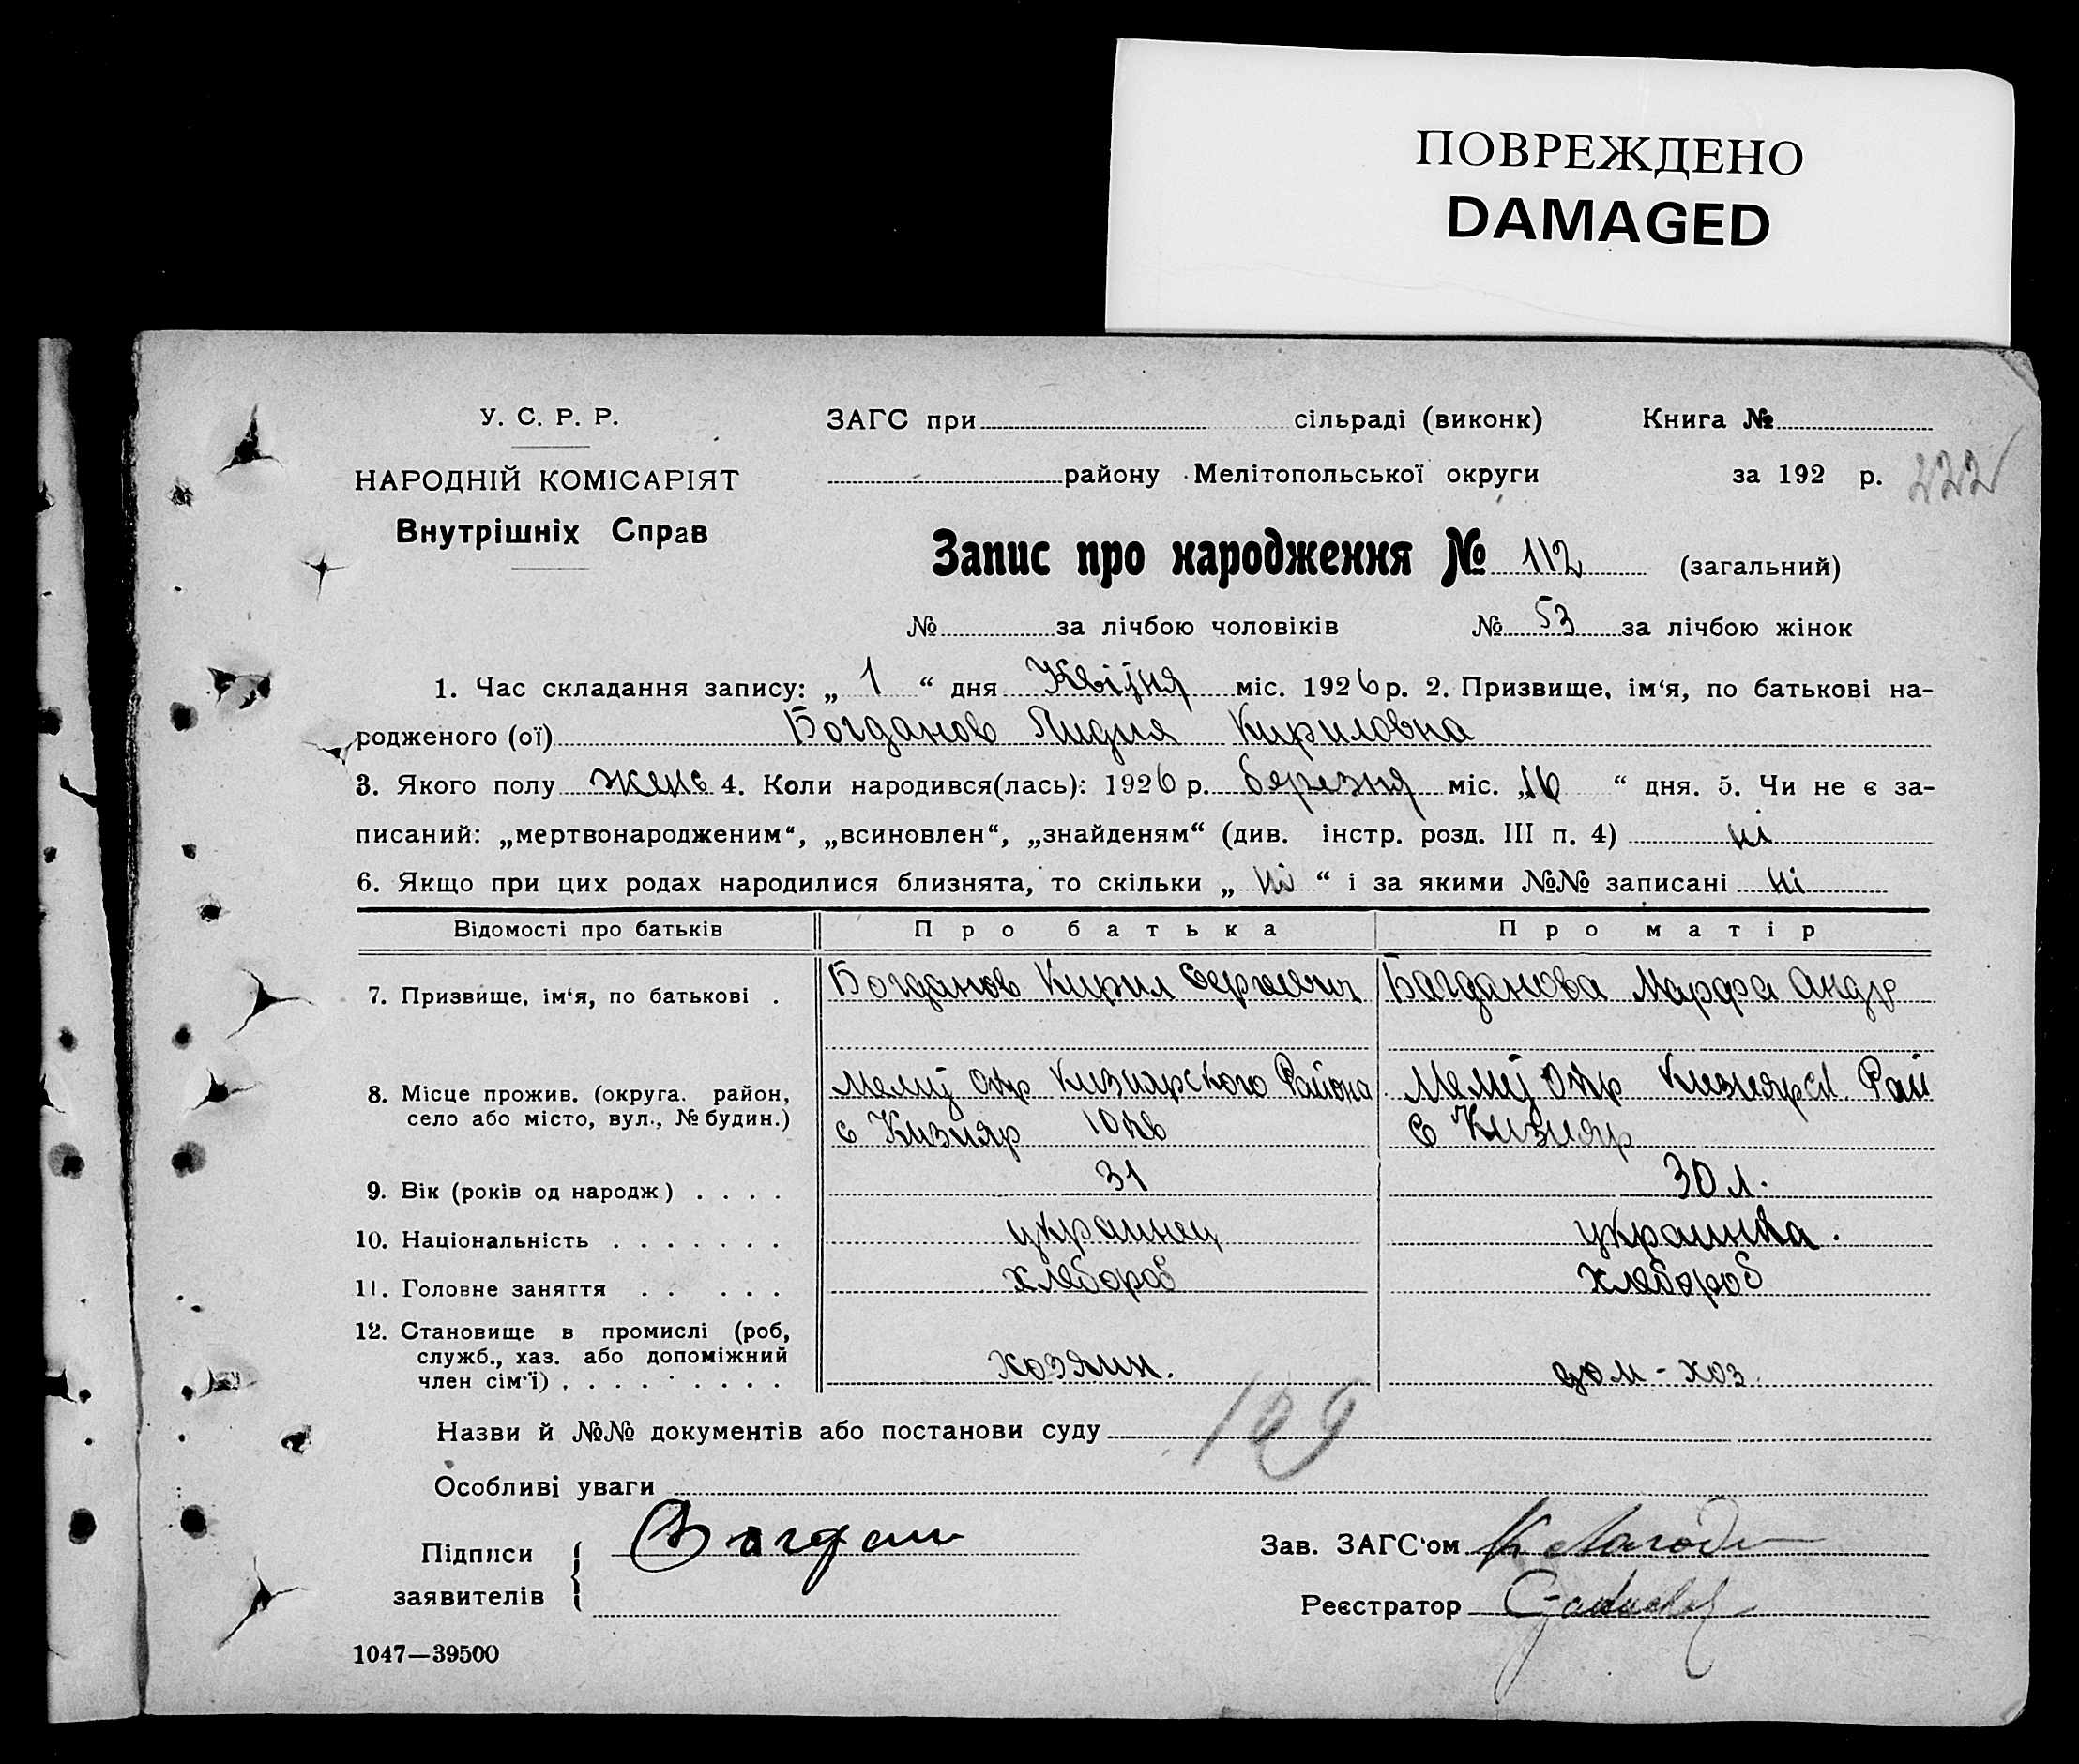 ПОВРЕЖДЕНО
DAMAGED
У. С. Р. Р.
НАРОДНІЙ КОМІСАРІЯТ
Внутрішніх Справ
ЗАГС при сільраді (виконк) Книга №
району Мелітопольської округи за 192 р. 222
Запис про народження № 112 (загальний)
№ за лічбою чоловіків № 53 за лічбою жінок
1. Час складання запису: „ 1 “ дня Квітня міс. 1926 р. 2. Призвище, ім‘я, по батькові на-
родженого (ої) Богданов Лидия Кириловна
3. Якого полу женс 4. Коли народився(лась): 1926 р. березня міс. „16 “ дня. 5. Чи не є за-
писаний: „мертвонародженим“, „всиновлен“, „знайденям“ (див. інстр. розд. III п. 4) ні
6. Якщо при цих родах народилися близнята, то скільки „ ні “ і за якими №№ записані ні
Відомості про батьків Про батька Про матір
7. Призвище, ім‘я, по батькові . Богданов Кирил Сергеевич Богданова Марфа Андр
8. Місце прожив. (округа. район, Мелит Окр Кизиярского Района Мелит Окр Кизиярск. Рай
село або місто, вул., № будин.) с Кизияр 10 кв с Кизияр
9. Вік (років од народж) . . . . 31 30 л.
10. Національність . . . . . . . украинец украинка .
11. Головне заняття . . . . . хлебороб хлебороб
12. Становище в промислі (роб,
служб., хаз. або допоміжний хозяин. дом - хоз.
член сім‘ї) . . . . . . . . .
Назви й №№ документів або постанови суду 109
Особливі уваги
Підписи Богдан Зав. ЗАГС‘ом
заявителів Реєстратор
1047—39500